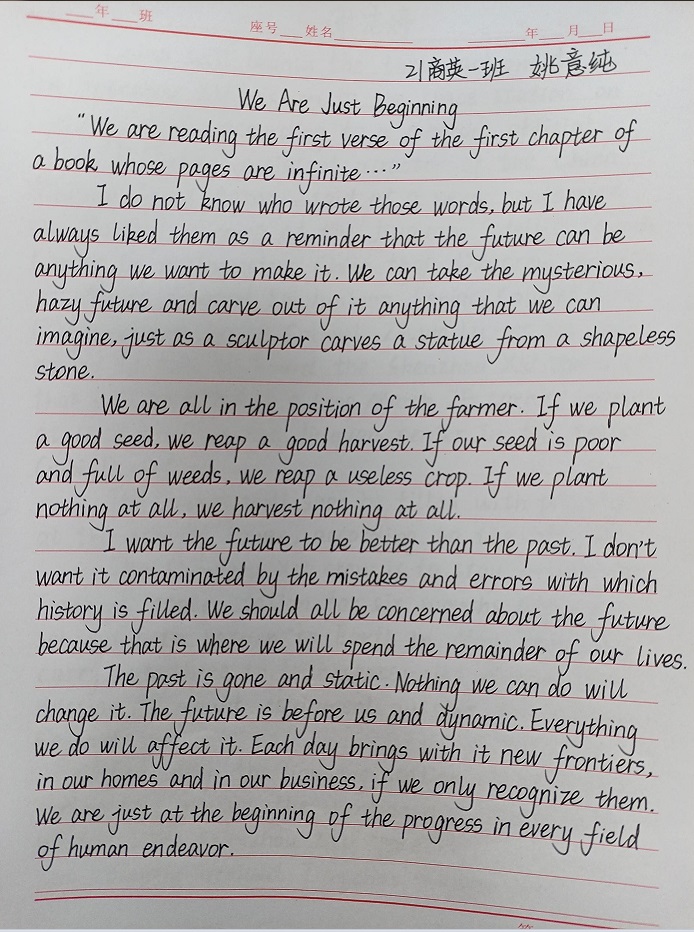 年 班 座号 姓名 年 月 日
21商英一班 姚意纯
We Are Just Beginning
"We are reading the first verse of the first chapter of
a book whose pages are infinite…"
I do not know who wrote those words, but I have
always liked them as a reminder that the future can be
anything we want to make it. We can take the mysterious,
hazy future and carve out of it anything that we can
imagine, just as a sculptor carves a statue from a shapeless
stone.
We are all in the position of the farmer. If we plant
a good seed, we reap a good harvest. If our seed is poor
and full of weeds, we reap a useless crop. If we plant
nothing at all, we harvest nothing at all.
I want the future to be better than the past. I don't
want it contaminated by the mistakes and errors with which
history is filled. We should all be concerned about the future
because that is where we will spend the remainder of our lives.
The past is gone and static. Nothing we can do will
change it. The future is before us and dynamic. Everything
we do will affect it. Each day brings with it new frontiers,
in our homes and in our business, if we only recognize them.
We are just at the beginning of the progress in every field
of human endeavor.